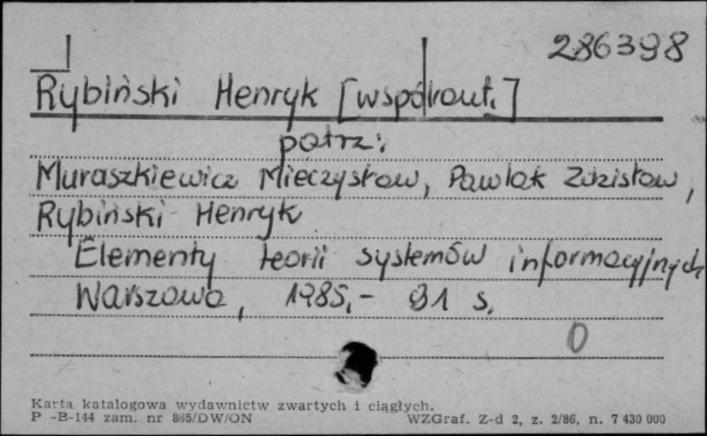 286398
Rybiński Henryk [współaut.]
patrz:
Muraszkiewicz Mieczysław, Pawlak Zdzisław,
Rybiński Henryk
Elementy teorii systemów informacyjnych
Warszawa, 1985,- 91 s.
0
Karta katalogowa wydawnictw zwartych i ciągłych.
P -B-144 zam. nr 865/DW/ON WZGraf. Z-d 2, z. 2/86, n. 7 430 000